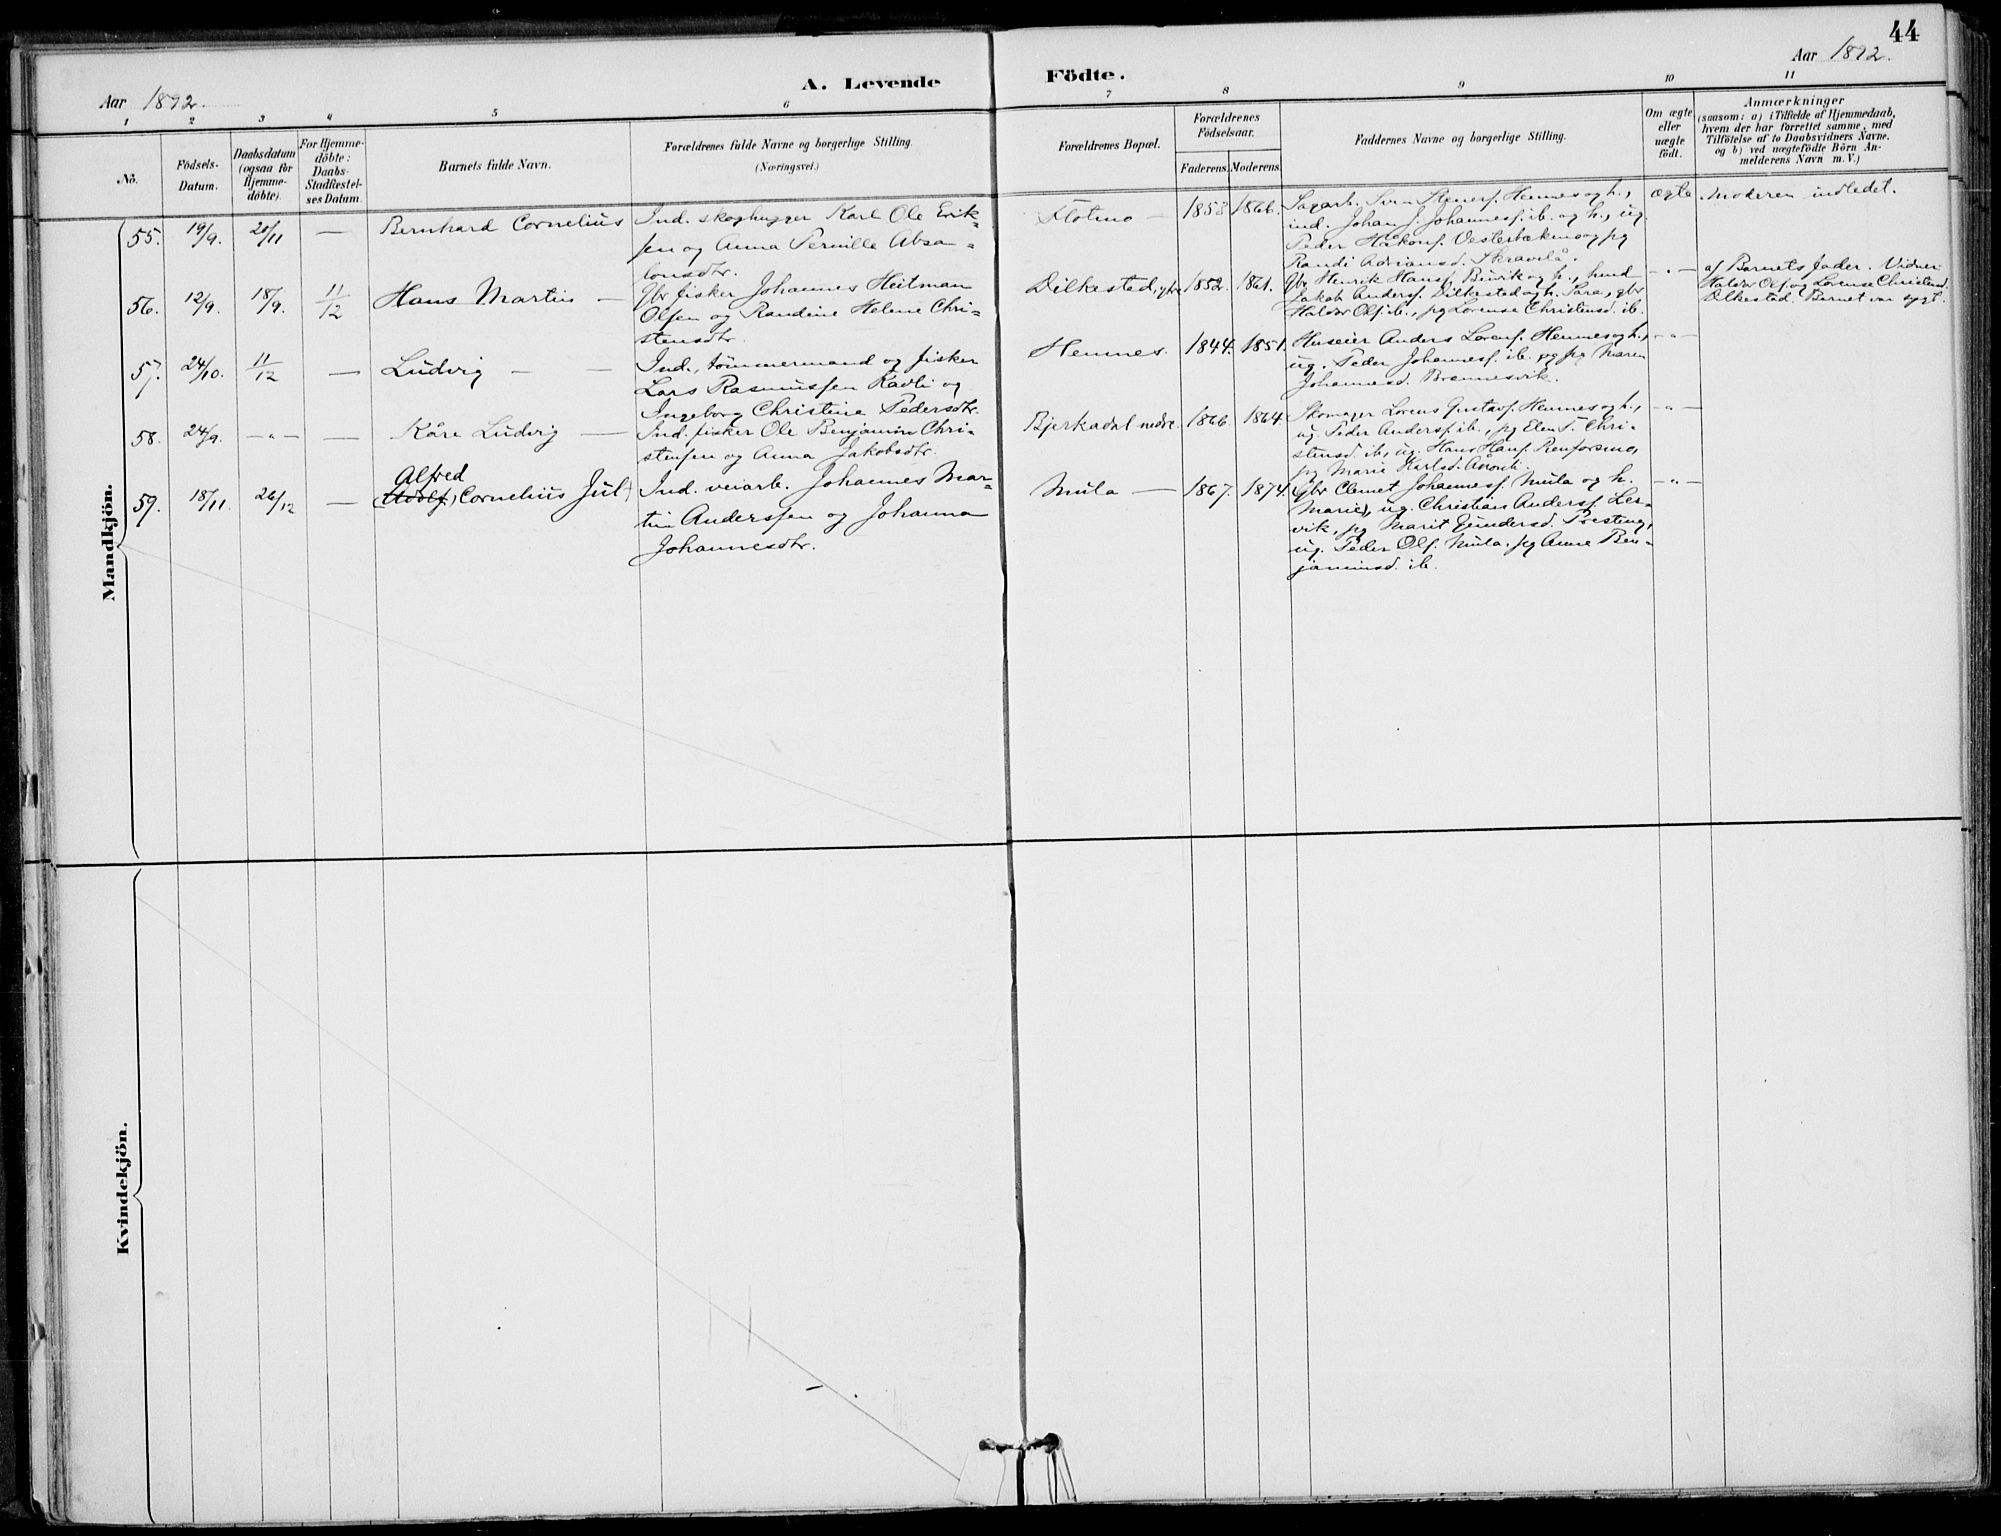 44
Aar 1892.
A. Levende Födte.
Aar 1892.
1 2 3 4 5 6 7 8 9 10 11
No.
Födsels-
Datum.
Daabsdatum
(ogsaa for
Hjemme-
döbte).
For Hjemme-
döbte:
Daabs-
Stadfæstel-
ses Datum.
Barnets fulde Navn.
Forældrenes fulde Navne og borgerlige Stilling.
(Næringsvei.)
Forældrenes Bopæl.
Forældrenes
Födselsaar.
Faderens. Moderens.
Faddernes Navne og borgerlige Stilling.
Om ægte
eller
uægte
födt.
Anmærkninger
(saasom: a) i Tilfælde af Hjemmedaab,
hvem der har forrettet samme, med
Tilföielse af to Daabsvidners Navne.
og b) ved uægtefödte Börn An-
melderens Navn m. V.)
Mandkjön.
55. 19/9. 20/11 — Bernhard Cornelius
Ind. skoghugger Karl Ole Erik-
sen og Anna Pernille Absa-
lonsdtr.
Flotmo — 1858 1866.
Sagarb. Sven Stenersf. Hemnes og h.,
ind. Johan J. Johannesf. ib. og h., ug.
Peder Håkonf. Vesterbækmo og pg
Randi Adriansd. Skravlå.
ægte
Moderen indledet.
56. 12/9. 18/9. 11/12 Hans Martin —
Gbr fisker Johannes Heitman
Olsen og Randine Helene Chri-
stensdtr.
Dilkestad, ytre 1852. 1861.
Gbr Henrik Hansf. Binvik og h., husd
Jakob Andersf. Dilkestad og h. Sara, gbr
Haldor Olf. ib., pg Lorense Christensd. ib.
-"-
af Barnets fader. Vidner
Haldor Olf. og Lorense Christensd.
Dilkestad. Barnet var sygt.
57. 24/10. 11/12 — Ludvig — —
Ind., tømmermand og fisker
Lars Rasmussen Ravli og
Ingeborg Christine Pedersdtr.
Hemnes. 1844. 1851.
Huseier Anders Lorensf. Hemnes og h.,
ug. Peder Johannesf. ib. og pg Maren
Johannesd. Brennesvik.
-"-
58. 24/9. -"- — Kåre Ludvig —
Ind. fisker Ole Benjamin Chri-
stensen og Anna Jakobsdtr.
Bjerkadal nedre. 1866. 1864.
Skomager Lorens Gustavf. Hemnes og h.,
ug. Peder Andersf. ib., pg Elen S. Chri-
stensd. ib., ug. Hans Hansf. Renforsmo,
pg Marie Karlsd.
-"-
59. 18/11. 26/12 — Alfred
(Adolf) Cornelius Jul
Ind. veiarb. Johannes Mar-
tin Anderssen og Johanna
Johannesdtr.
Mula — 1867. 1874.
Gbr Clemet Johannesf. Mula og h.
Marie, ug. Christian Andersf. Ler-
vik, pg Marit Gundersd. Presteng,
ug. Peder Olf. Mula. pg Anne Ben-
jaminsd. ib.
-"-
Kvindekjön.